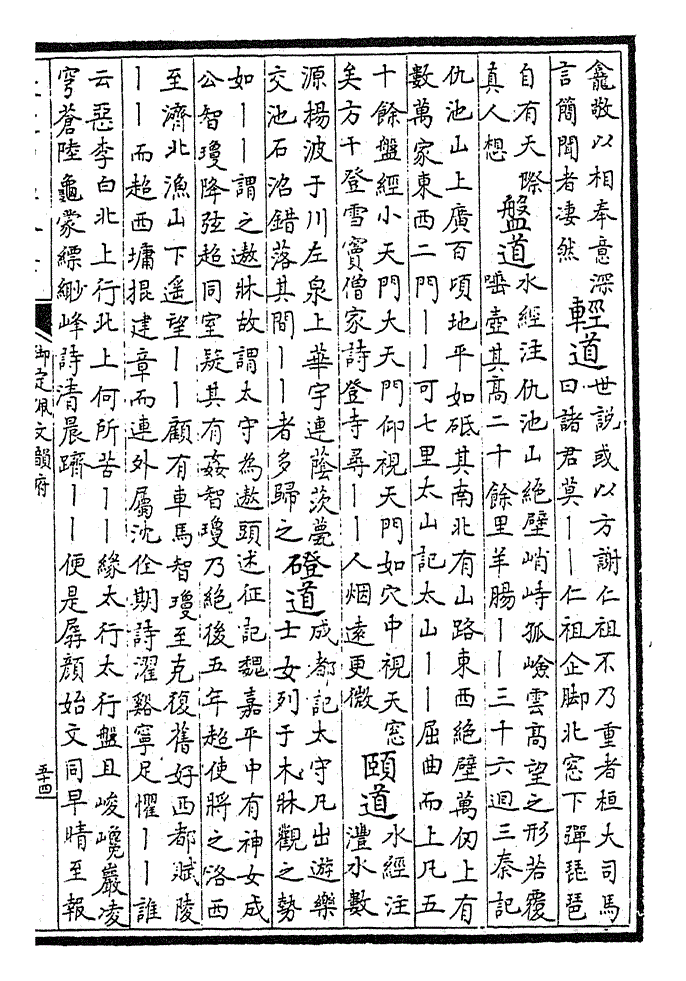 龕敬以相奉意深
言簡聞者凄然
輕道
世説或以方謝仁祖不乃重者桓大司馬
曰諸君莫丨丨仁祖企脚北窓下彈琵琶
自有天際
真人想
盤道
水經注仇池山絶壁峭峙孤嶮雲高望之形若覆
唾壺其髙二十餘里羊腸丨丨三十六迴三秦記
仇池山上廣百頃地平如砥其南北有山路東西絶壁萬仞上有
數萬家東西二門丨丨可七里太山記太山丨丨屈曲而上凡五
十餘盤經小天門大天門仰視天門如穴中視天窓
矣方干登雪竇僧家詩登寺尋丨丨人烟遠更微
頤道
水經注
灃水數
源揚波于川左泉上華宇連蔭茨甍
交池石沼錯落其間丨丨者多歸之
磴道
成都記太守凡出遊樂
士女列于木牀觀之勢
如丨丨謂之遨牀故謂太守為遨頭述征記魏嘉平中有神女成
公智瓊降弦超同室疑其有姦智瓊乃絶後五年超使將之洛西
至濟北漁山下遥望丨丨顧有車馬智瓊至克復舊好西都賦陵
丨丨而超西墉掍建章而連外屬沈佺期詩濯谿寧足懼丨丨誰
云惡李白北上行北上何所苦丨丨緣太行太行盤且峻巉巖凌
穹蒼陸龜蒙縹緲峰詩清晨躋丨丨便是孱顔始文同早晴至報
御定佩文韻府
五十四